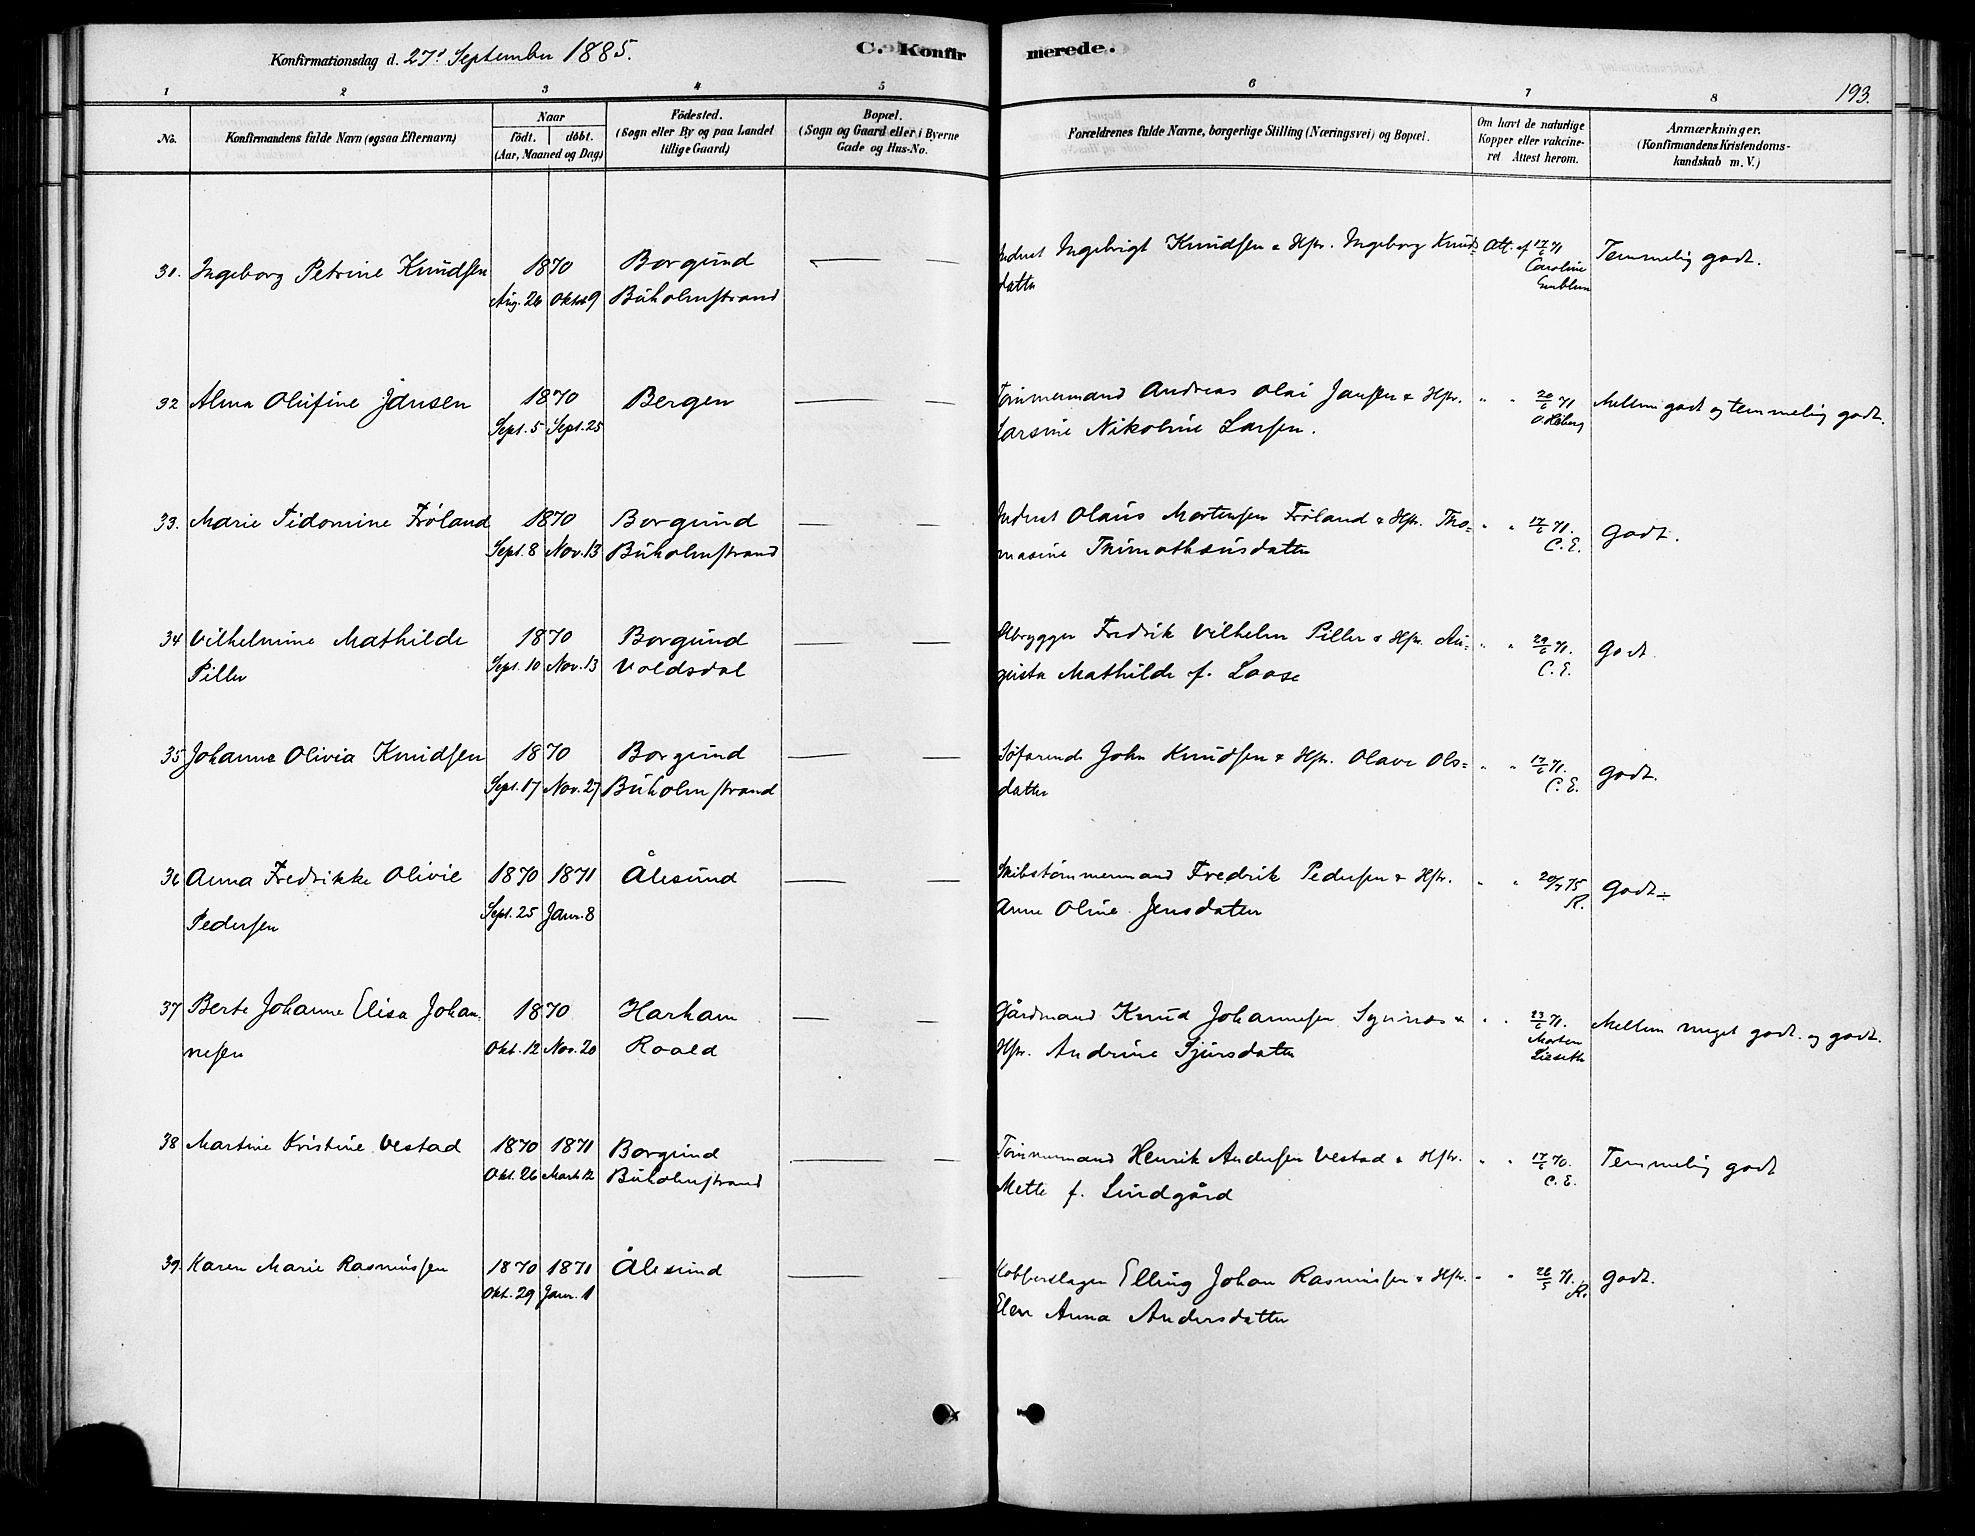 Konfirmationsdag d. 27d September 1885.
C. Konfirmerede.
193.
1 2 3 4 5 6 7 8
No.
Konfirmandens fulde Navn (ogsaa Efternavn)
Naar
født. døbt.
(Aar, Maaned og Dag)
Fødested.
(Sogn eller By og paa Landet
tillige Gaard)
Bopæl.
(Sogn og Gaard eller i Byerne
Gade og Hus-No.
Forældrenes fulde Navne, borgerlige Stilling (Næringsvei) og Bopæl.
Om havt de naturlige
Kopper eller vakcine-
ret Attest herom.
Anmærkninger.
(Konfirmandens Kristendoms-
kundskab m. V.)
31. Ingeborg Petrine Knudsen 1870 Borgund — — Inderst Ingebrigt Knudsen & Hstr. Ingeborg Knuds- Att. af 17/6 71 Temmelig godt.
Aug. 26 Oktob 9 Buholmstrand datter Caroline
Emblem
32 Alma Olufine Jansen 1870 Bergen — — Tømmermand Andreas Olai Jansen & Hstr. " " 20/6 71 Mellem godt og temmelig godt.
Sept. 5 Sept. 25 Larsine Nikoline Larsen.
33. Marie Tidomine Frøland 1870 Borgund — — Inderst Olaus Mortensen Frøland & Hstr. Tho= " " 17/6 71. Godt.
Sept. 8 Nov. 13 Buholmstrand masine Thimothæusdatter C. E.
34 Vilhelmine Mathilde 1870 Borgund — — Ølbrygger Fredrik Vilhelm Piller & Hstr. Au= " " 29/6 71. Godt
Piller Sept. 10 Nov. 13 Voldsdal gusta Mathilde f. Loose C. E.
35 Johanne Olivia Knudsen 1870 Borgund — — Søfarende John Knudsen & Hstr. Olave Ols= " " 17/6 71. Godt.
Sept. 17 Nov. 27 Buholmstrand datter C. E.
36 Anna Fredrikke Olivie 1870 1871 Ålesund — — Skibstømmermand Fredrik Pedersen & Hstr. " " 20/7 75 Godt ÷
Pedersen Sept. 25 Janr. 8 Anne Oline Jensdatter R.
37 Berte Johanne Elisa Johan- 1870 Harham — — Gårdmand Knud Johannesen Synnes & " " 23/6 71. Mellem meget godt. og godt.
nesen Okt. 12 Nov. 20 Roald Hstr. Andrine Sjursdatter Morten
38 Martine Kristine Vestad 1870 1871 Borgund — — Tømmermand Henrik Andersen Vestad & Hstr. " " 17/6 70. Temmelig godt
Okt. 26 Marts 12 Buholmstrand Mette f. Lindgård C. E.
39. Karen Marie Rasmussen 1870 1871 Ålesund — — Kobberslager Elling Johan Rasmussen & Hstr. " " 26/5 71. Godt.
Okt. 29 Janr. 1 Elen Anna Andersdatter R.